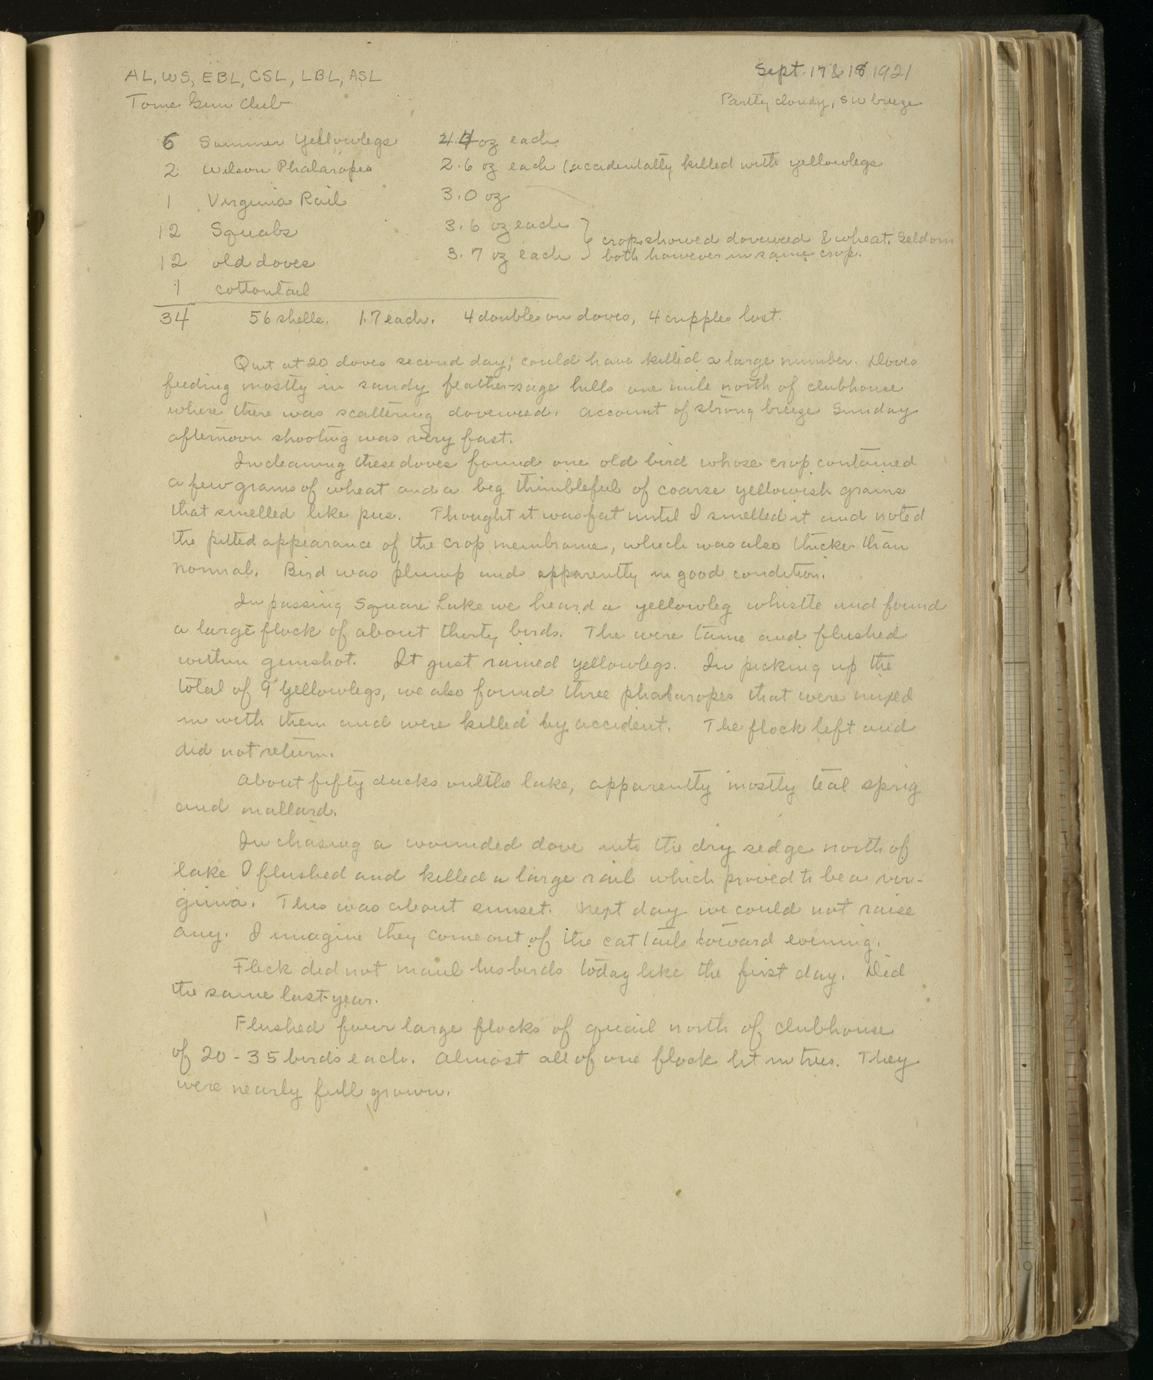 AL, WS, EBL, CSL, LBL, ASL
Sept 17 & 18 1921
Tome Gun Club
Partly cloudy, SW breeze
6 Summer Yellowlegs 4.4 oz each
2 Wilson Phalaropes 2.6 oz each (accidentally killed with yellowlegs
1 Virginia Rail 3.0 oz
12 Squabs 3.6 oz each
crops showed doveweed & wheat. Seldom
12 old doves 3.7 oz each
both however in same crop.
1 cottontail
34 56 shells. 1.7 each. 4 doubles on doves, 4 cripples lost.
Quit at 20 doves second day; could have killed a large number. Doves
feeding mostly in sandy feather-sage hills one mile north of clubhouse
where there was scattering doveweed. Account of strong breeze Sunday
afternoon shooting was very fast.
In cleaning these doves found one old bird whose crop contained
a few grains of wheat and a big thimbleful of coarse yellowish grains
that smelled like pus. Thought it was fat until I smelled it and noted
the pitted appearance of the crop membrane, which was also thicker than
normal. Bird was plump and apparently in good condition.
In passing Square Lake we heard a yellowleg whistle and found
a large flock of about thirty birds. The were tame and flushed
within gunshot. It just rained yellowlegs. In picking up the
total of 9 yellowlegs, we also found three phalaropes that were mixed
in with them and were killed by accident. The flock left and
did not return.
About fifty ducks on the lake, apparently mostly teal sprig
and mallard.
In chasing a wounded dove into the dry sedge north of
lake I flushed and killed a large rail which proved to be a vir-
ginia. This was about sunset. Next day we could not raise
any. I imagine they come out of the cat tails toward evening.
Flick did not maul his birds today like the first day. Did
the same last year.
Flushed four large flocks of quail north of clubhouse
of 20 - 35 birds each. Almost all of one flock lit in trees. They
were nearly full grown.